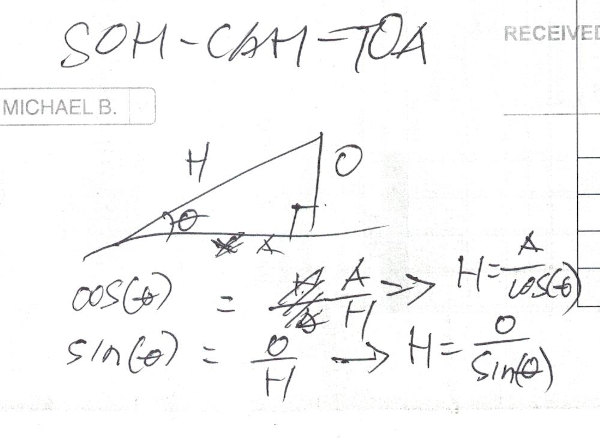 SOH-CAH-TOA
RECEIVED
MICHAEL B.
H
O
θ
A
cos(θ) = A/H -> H = A/cos(θ)
sin(θ) = O/H -> H = O/sin(θ)